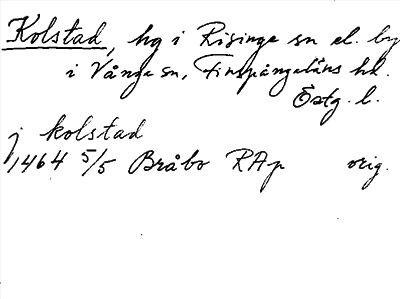 Kolstad, hg i Risinge sn el. by
i Vånga sn, Finspångaläns hd.
Östg. l.
j kolstad
1464 5/5 Bråbo RAp orig.